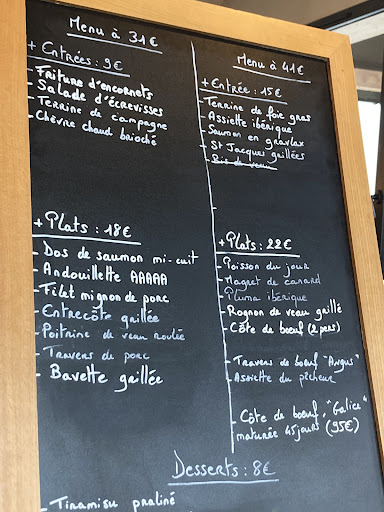 Menu à 31€
+ Entrées : 9€
- Friture d'encornets
- Salade d'écrevisses
- Terrine de campagne
- Chèvre chaud brioché
+ Plats : 18€
- Dos de saumon mi-cuit
- Andouillette AAAAA
- Filet mignon de porc
- Entrecôte grillée
- Poitrine de veau roulée
- Travers de porc
- Bavette grillée
Menu à 41€
+ Entrée : 15€
- Terrine de foie gras
- Assiette ibérique
- Saumon en gravlax
- St Jacques grillées
- Ris de veau
+ Plats : 22€
- Poisson du jour
- Magret de canard
- Pluma ibérique
- Rognon de veau grillé
- Côte de boeuf (2 pers)
- Travers de boeuf "Angus"
- Assiette du pêcheur
- Côte de boeuf, "Galice"
maturée 45 jours (95€)
Desserts : 8€
- Tiramisu praliné